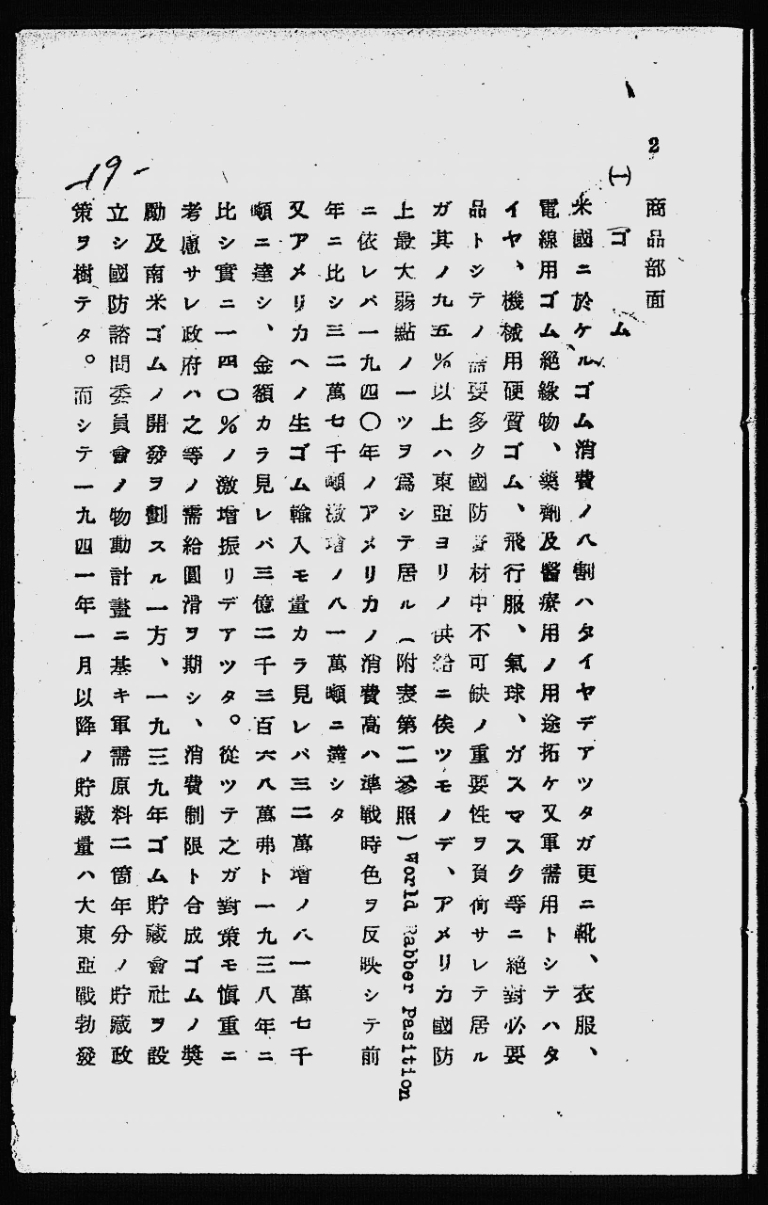 2 商品部面
㈠ ゴム
米國ニ於ケルゴム消費ノ八割ハタイヤデアツタガ更ニ靴、衣服、
電線用ゴム絕緣物、藥劑及醫療用ノ用途拓ケ又軍需用トシテハタ
イヤ、機械用硬質ゴム、飛行服、氣球、ガスマスク等ニ絕對必要
品トシテノ需要多ク國防資材中不可缺ノ重要性ヲ負荷サレテ居ル
ガ其ノ九五%以上ハ東亞ヨリノ供給ニ俟ツモノデ、アメリカ國防
上最大弱點ノ一ツヲ爲シテ居ル(附表第二參照)World Rabber Pasition
ニ依レバ一九四〇年ノアメリカノ消費高ハ準戰時色ヲ反映シテ前
年ニ比シ三二萬七千噸激增ノ八一萬噸ニ達シタ
又アメリカヘノ生ゴム輸入モ量カラ見レバ三二萬增ノ八一萬七千
噸ニ達シ、金額カラ見レバ三億二千三百六八萬弗ト一九三八年ニ
比シ實ニ一四〇%ノ激增振リデアツタ。從ツテ之ガ對策モ愼重ニ
考慮サレ政府ハ之等ノ需給圓滑ヲ期シ、消費制限ト合成ゴムノ奬
勵及南米ゴムノ開發ヲ劃スル一方、一九三九年ゴム貯藏會社ヲ設
立シ國防諮問委員會ノ物動計畫ニ基キ軍需原料二箇年分ノ貯藏政
策ヲ樹テタ。而シテ一九四一年一月以降ノ貯藏量ハ大東亞戰勃發
-19-